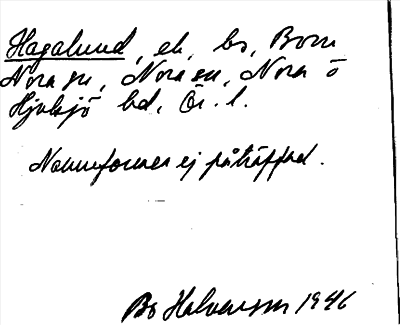 Hagalund, eh, bs, Born
Nora sn, Nora sn, Nora ö
Hjulsjö bd, Ör. l.
Namnformen ej påträffad.
Bo Halvarsson 1946